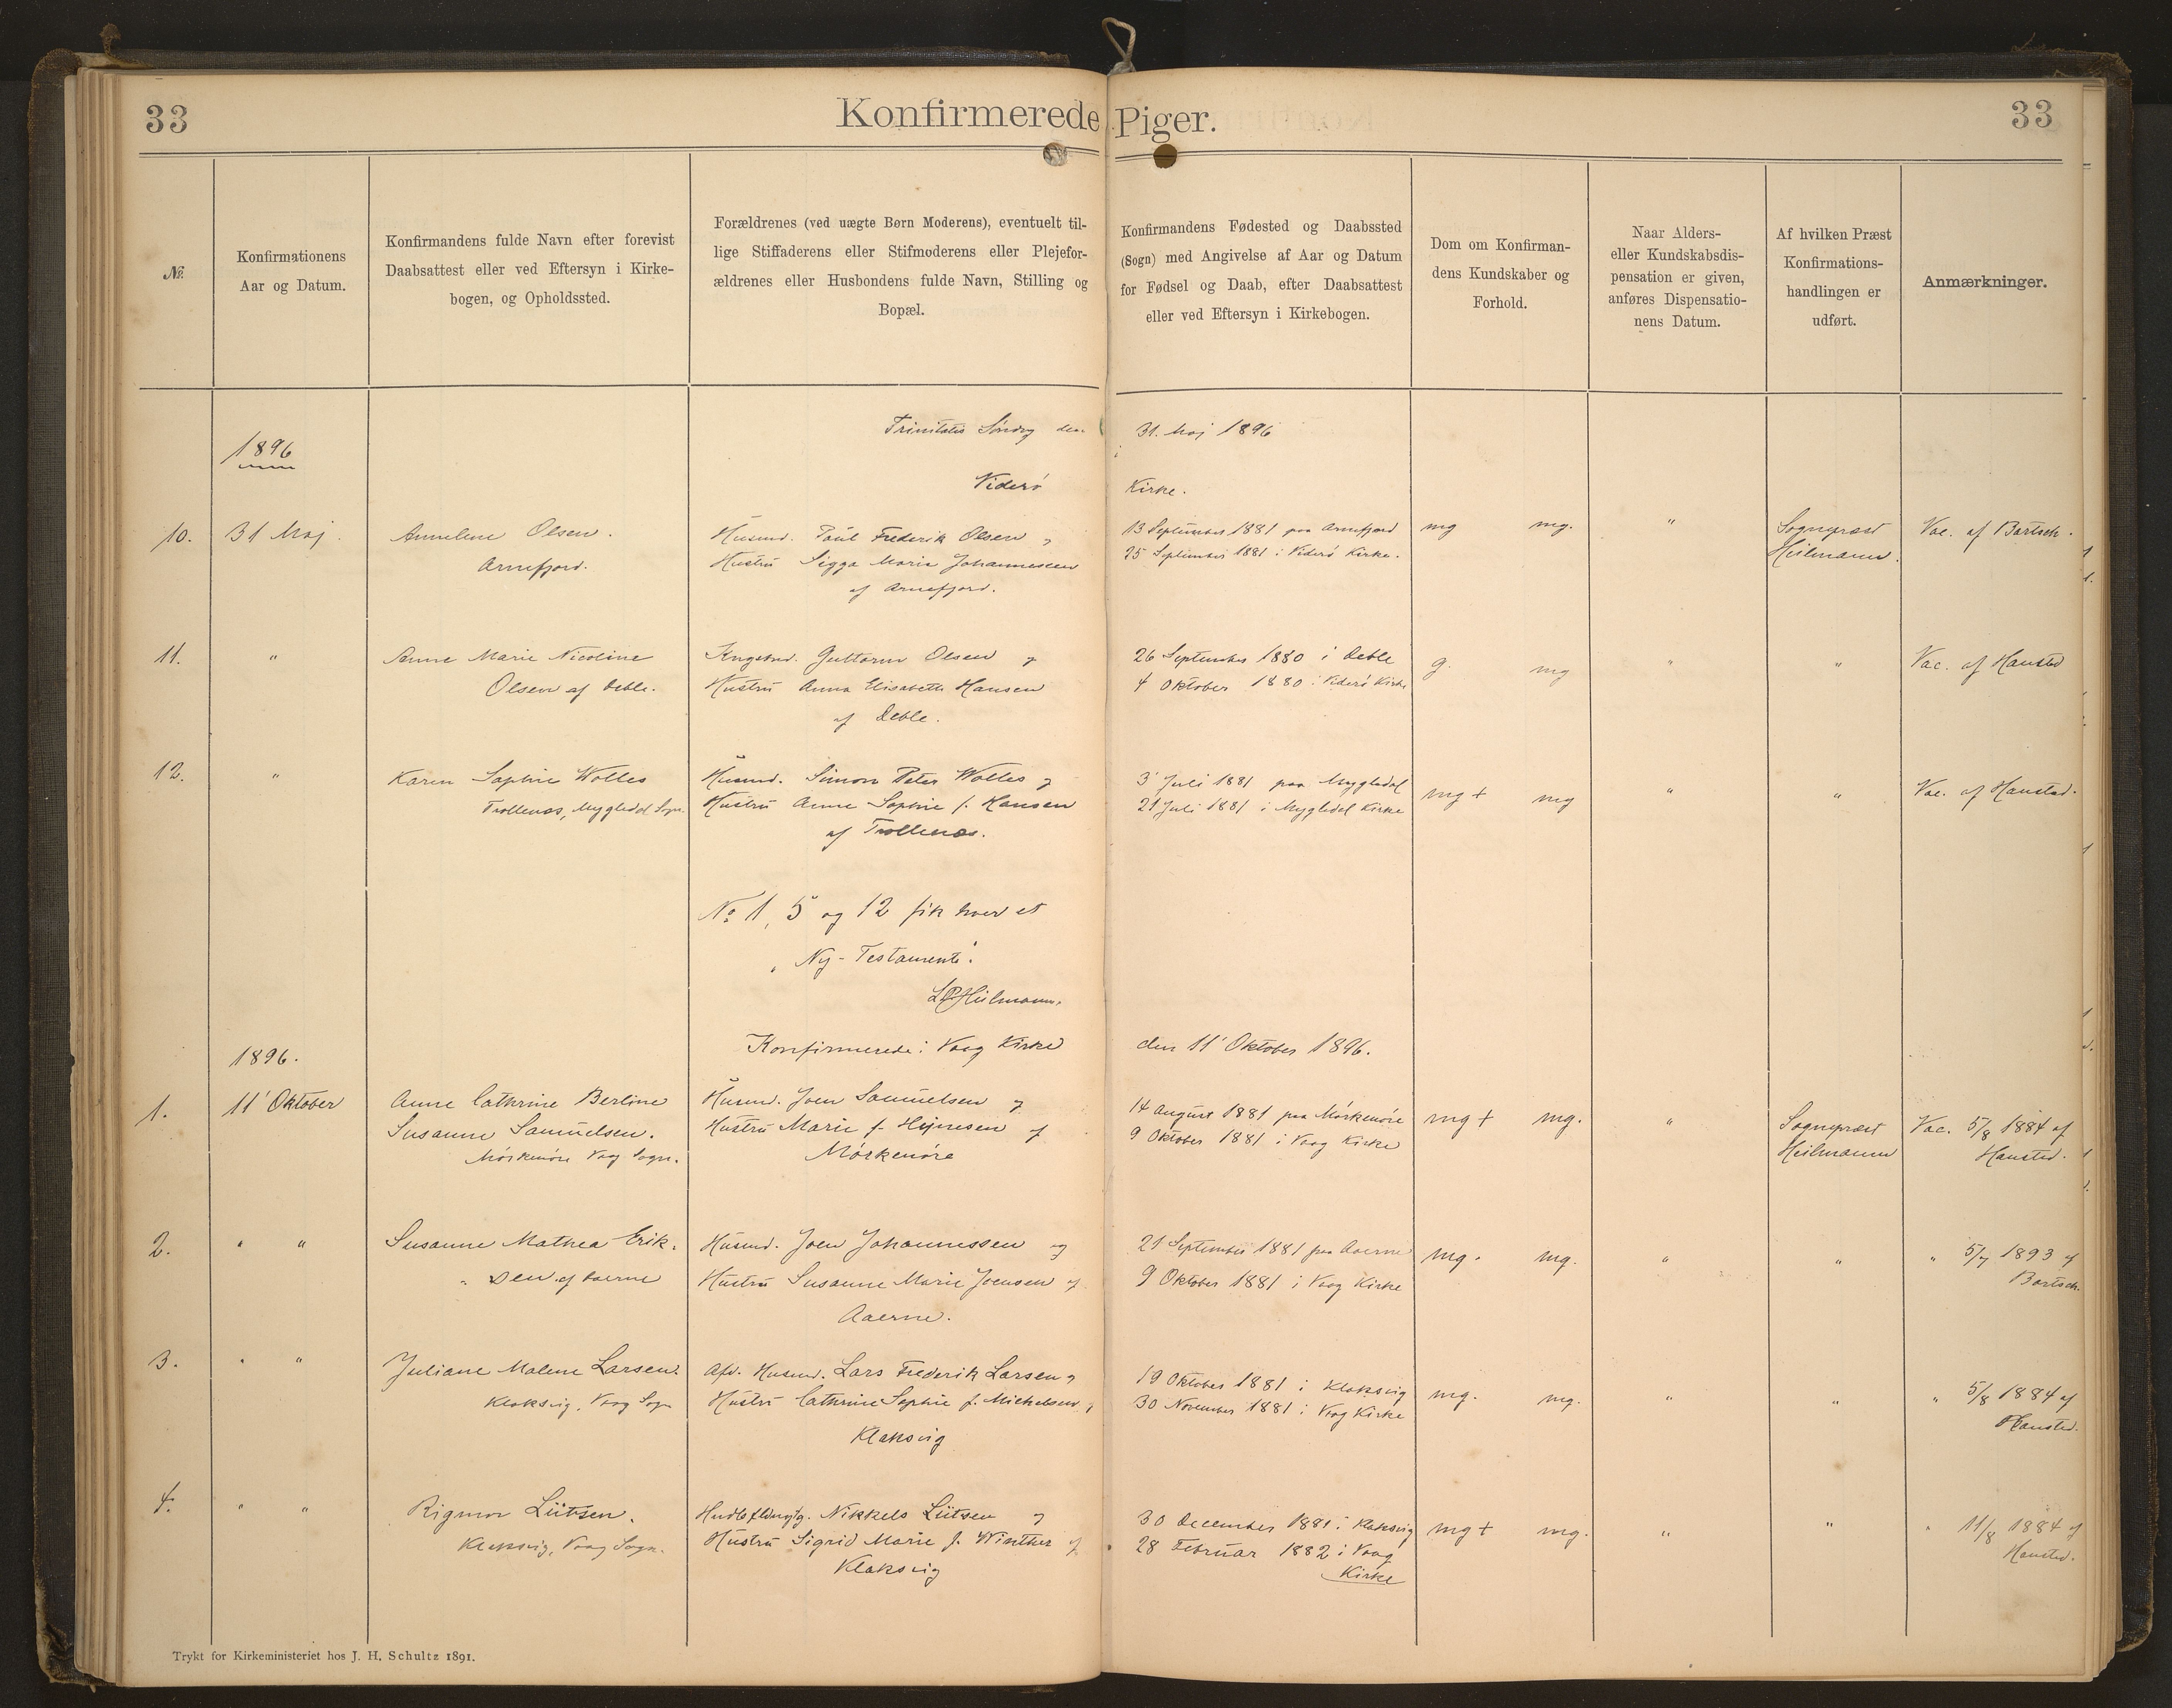 33
Konfirmerede Piger.
33
No.
Konfirmationens
Aar og Datum.
Konfirmandens fulde Navn efter forevist
Daabsattest eller ved Eftersyn i Kirke-
bogen, og Opholdssted.
Forældrenes (ved uægte Børn Moderens), eventuelt til-
lige Stiffaderens eller Stifmoderens eller Plejefor-
ældrenes eller Husbondens fulde Navn, Stilling og
Bopæl.
Konfirmandens Fødested og Daabssted
(Sogn) med Angivelse af Aar og Datum
for Fødsel og Daab, efter Daabsattest
eller ved Eftersyn i Kirkebogen.
Dom om Konfirman-
dens Kundskaber og
Forhold.
Naar Alders-
eller Kundskabsdis-
pensation er given,
anføres Dispensatio-
nens Datum.
Af hvilken Præst
Konfirmations-
handlingen er
udført.
Anmærkninger.
1896
Trinitatis Søndag den 31. Maj 1896
Viderø Kirke.
10.
31 Maj.
Annelene Olsen.
Arnefjord.
Husmd. Paul Frederik Olsen og
Hustru Sigga Maria Johannessen
af Arnefjord.
13 September 1881 paa Arnefjord
25 September 1881 i Viderø Kirke.
mg mg.
"
Sognepræst
Heilmann.
Vac. af Bartsch.
11.
"
Anne Marie Nicoline
Olsen af Deble.
Kngsbnd. Guttorm Olsen og
Hustru Anna Elisabeth Hansen
af Deble.
26 September 1880 i Deble
4 Oktober 1880 i Viderø Kirke
g. mg
"
"
Vac. af Hansted
12.
"
Karen Sophie Wolles
Trollenæs, Mygledal Sogn.
Husmd. Simon Peter Wolles og
Hustru Anne Sophie f. Hansen
af Trollenæs.
3' Juli 1881 paa Mygledal
21 Juli 1881 i Mygledal Kirke
mg+ mg
"
"
Vac. af Hansted.
No 1, 5 og 12 fik hver et
"Ny-Testamente".
LPHeilmann.
1896.
Konfirmerede i Vaag Kirke den 11' Oktober 1896.
1.
11' Oktober
Anne Cathrine Berline
Susanne Samuelsen.
Mørkenøre Vaag Sogn.
Husmd. Joen Samuelsen og
Hustru Marie f. Hejnesen af
Mørkenøre
14 August 1881 paa Mørkenøre
9 Oktober 1881 i Vaag Kirke
mg+ mg.
"
Sognepræst
Heilmann
Vac. 5/8 1884 af
Hansted.
2.
" "
Susanne Mathea Erik-
sen af Aaerne
Husmd. Joen Johannessen og
Hustru Susanne Marie Joensen af
Aaerne.
21 September 1881 paa Aaerne
9 Oktober 1881 i Vaag Kirke
mg. mg.
"
"
" 5/7 1893 af
Bartsch.
3.
" "
Juliane Malene Larsen.
Klaksvig, Vaag Sogn
Afd. Husmd. Lars Frederik Larsen og
Hustru Cathrine Sophie f. Michelsen af
Klaksvig
19 Oktober 1881 i Klaksvig
30 November 1881 i Vaag Kirke
mg. mg.
"
"
" 5/8 1884 af
Hansted.
4.
" "
Rigmor Lützen.
Klaksvig, Vaag Sogn.
Nikkels Lützen og
Hustru Sigrid Marie f. Winther af
Klaksvig
30 December 1881 i Klaksvig
28 Februar 1882 i Vaag
Kirke
mg+ mg.
"
"
" 11/8 1884 af
Hansted.
Trykt for Kirkeministeriet hos J. H. Schultz 1891.